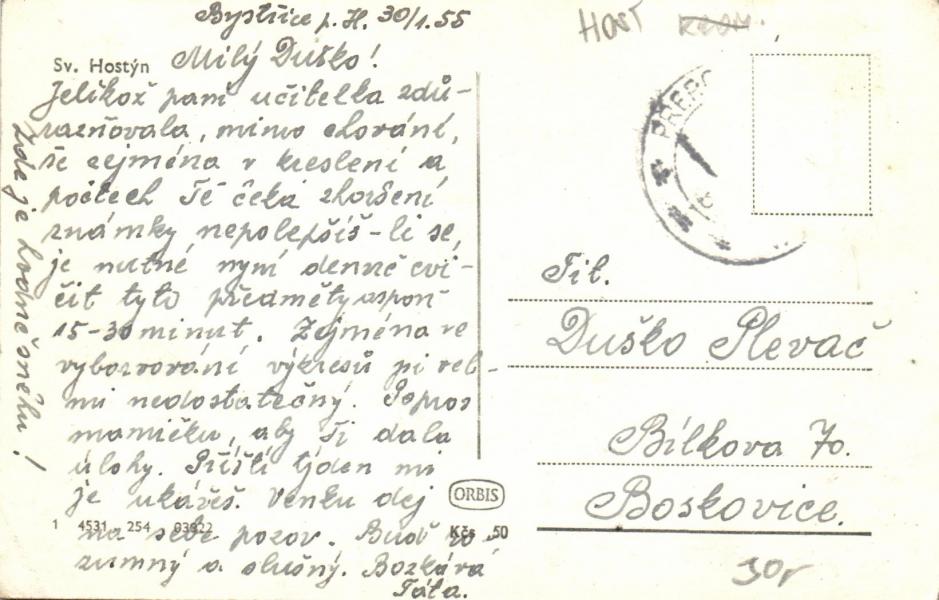 Bystřice p. H. 30/1. 55
HOST
Sv. Hostýn
Milý Duško!
Jelikož paní učitelka zdů-
razňovala, mimo chování,
že zejména v kreslení a
počtech Tě čeká zhoršení
známky nepolepšíš-li se,
je nutné nyní denně cvi-
čit tyto předměty aspoň
15-30 minut. Zejména ve
vybarvování výkresů jsi vel-
mi nedostatečný. Popros
mamičku, aby Ti dala
úlohy. Příští týden mi
je ukážeš. Venku dej
na sebe pozor. Buď ro-
zumný a slušný. Bozkává
Táta.
Zde je hodně sněhu!
PŘERO
Tit.
Duško Plevač
Bílkova 70.
Boskovice.
ORBIS
1 4531 254 03922
Kčs ,50
30,-